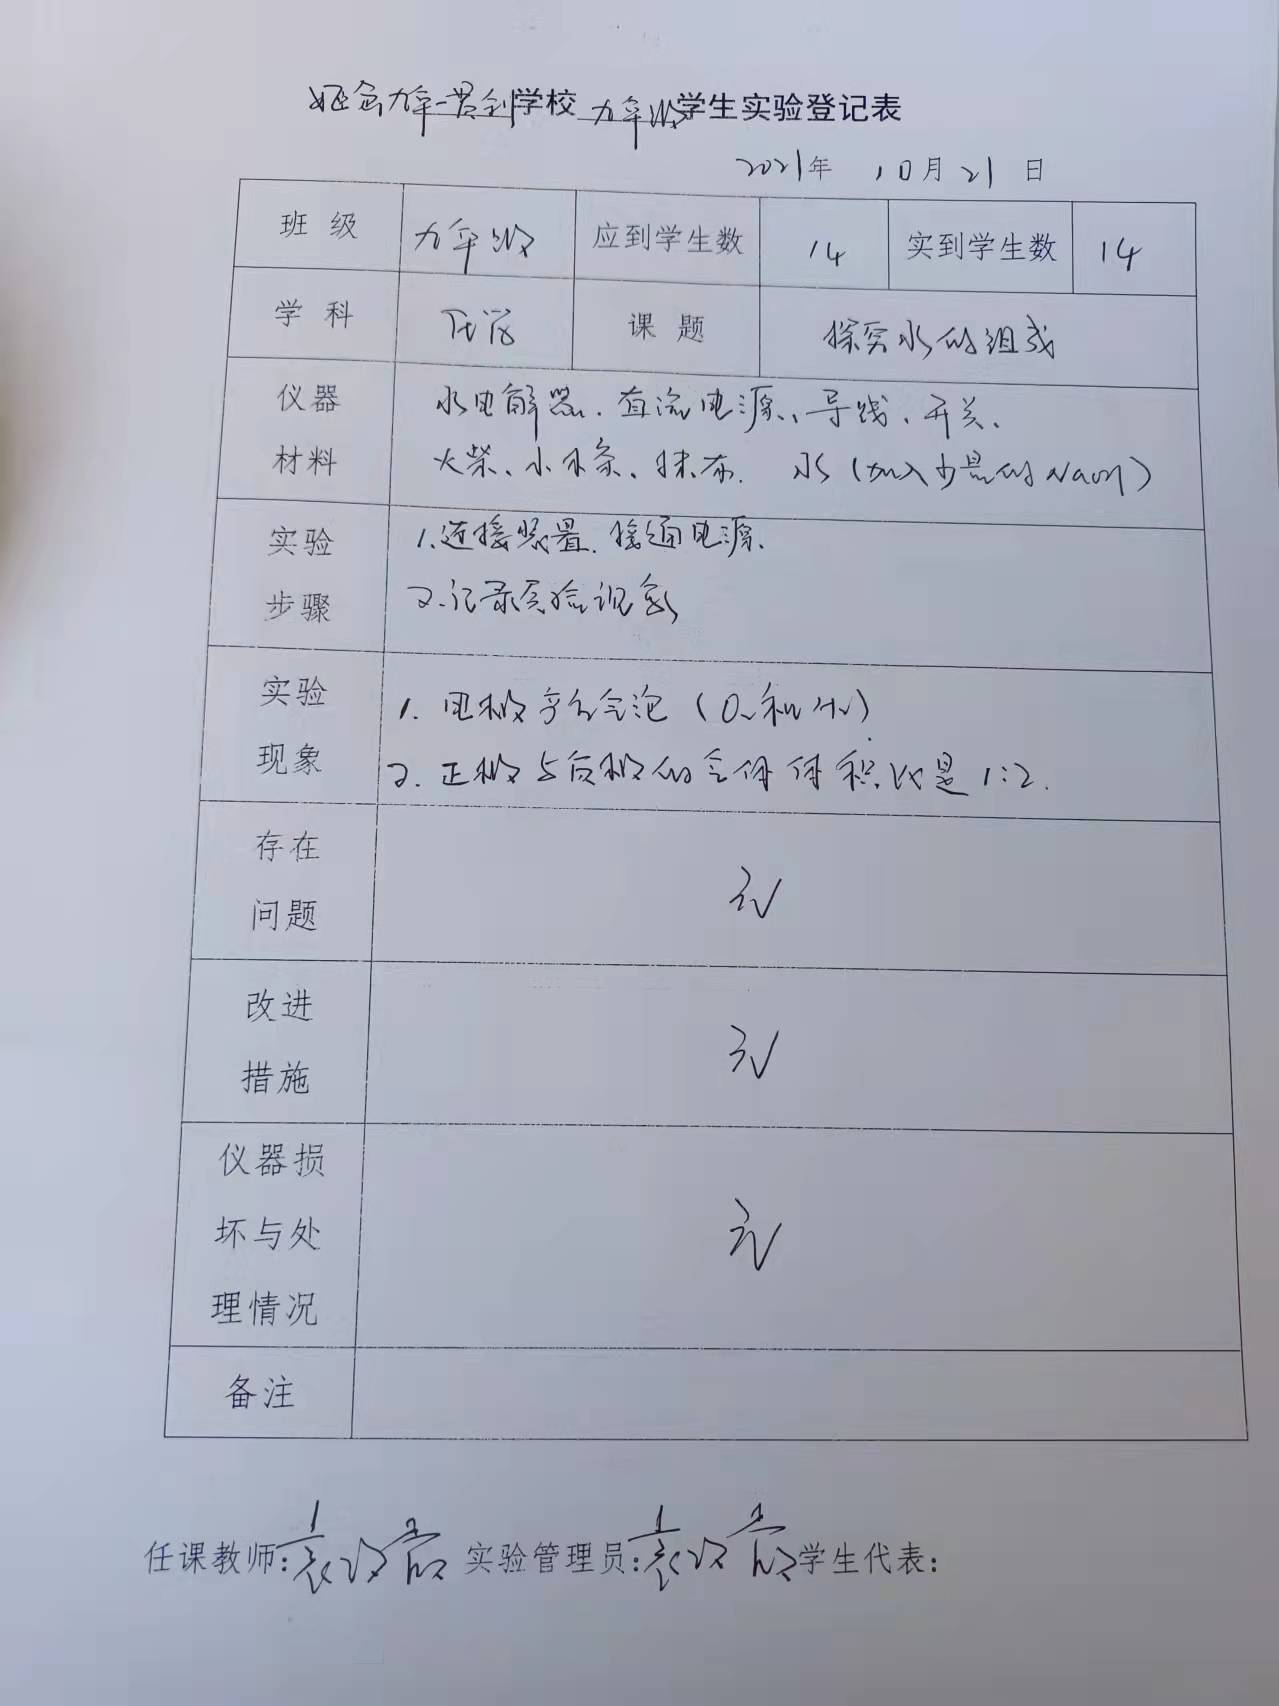 九年一贯制学校 九年级学生实验登记表
2021年 10月21日
班级 九年级 应到学生数 14 实到学生数 14
学科 化学 课题 探究水的组成
仪器
材料
水电解器、直流电源、导线、开关、
火柴、小木条、抹布. 水(加入少量的NaOH)
实验
步骤
1.连接装置.接通电源.
2.记录实验现象
实验
现象
1. 电极产生气泡(O₂和H₂)
2. 正极与负极的气体体积比是1:2.
存在
问题
无
改进
措施
无
仪器损
坏与处
理情况
无
备注
任课教师: 实验管理员: 学生代表: